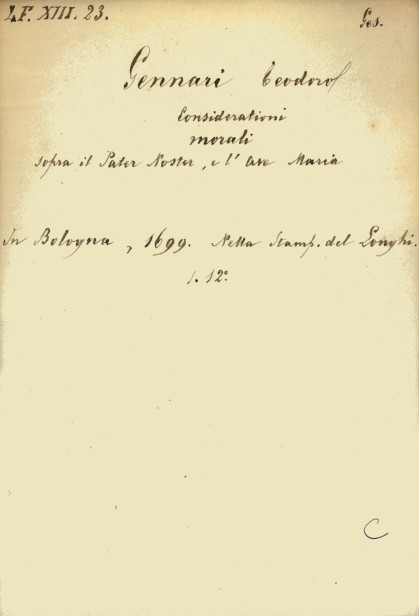 LF. XIII. 23.
Ges.
Gennari Teodoro
Considerationi
morali
sopra il Pater Noster, e l' Ave Maria
In Bologna, 1699. Nella Stamp. del Longhi.
1. 12°.
C